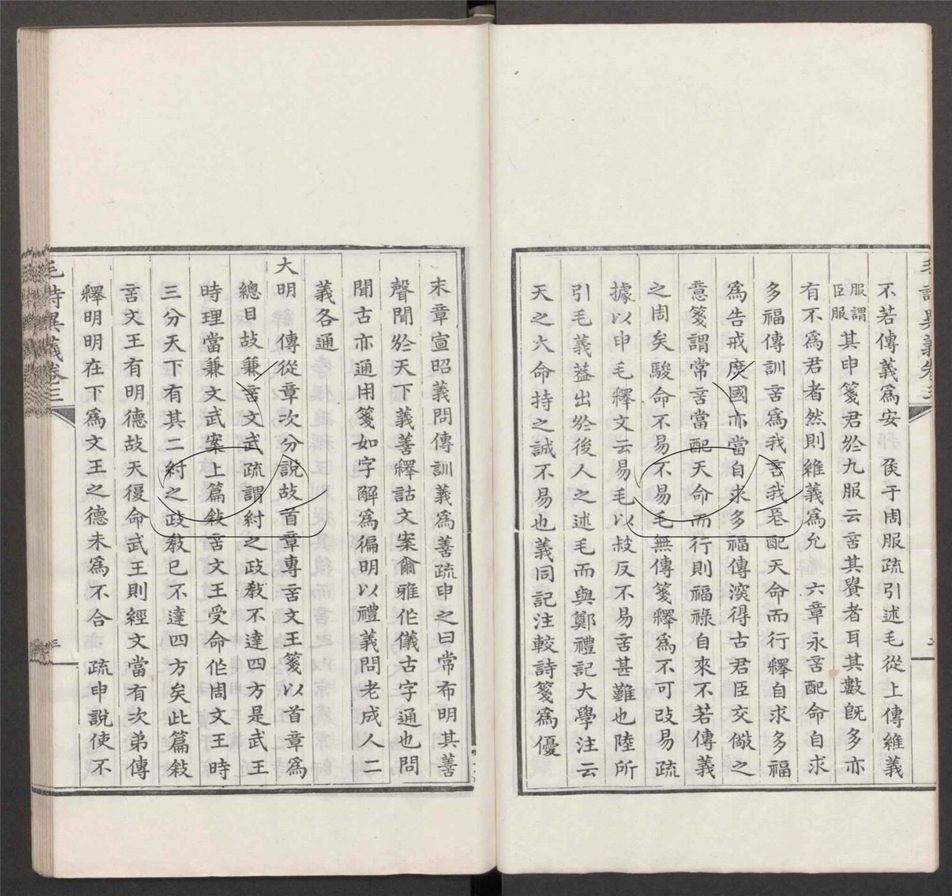 不若傳義爲安　矦于周服疏引述毛從上傳維義
服謂臣服其申箋君於九服云言其貴者耳其數旣多亦
有不爲君者然則維義爲允　六章永言配命自求
多福傳訓言爲我言我長配天命而行釋自求多福
爲告戒庶國亦當自求多福傳深得古君臣交儆之
意箋謂常言當配天命而行則福祿自來不若傳義
之周矣駿命不易不易毛無傳箋釋爲不可改易疏
據以申毛釋文云易毛以豉反不易言甚難也陸所
引毛義葢出於後人之述毛而與鄭禮記大學注云
天之大命持之誠不易也義同記注較詩箋爲優
末章宣昭義問傳訓義爲善疏申之曰常布明其善
聲聞於天下義善釋詁文案爾雅作儀古字通也問
聞古亦通用箋如字解爲徧明以禮義問老成人二
義各通
大明　傳從章次分說故首章專言文王箋以首章爲
總目故兼言文武疏謂紂之政敎不達四方是武王
時理當兼文武案上篇敍言文王受命作周文王時
三分天下有其二紂之政敎已不達四方矣此篇敍
言文王有明德故天復命武王則經文當有次弟傳
釋明明在下爲文王之德未爲不合　疏申說使不
毛詩異義卷三